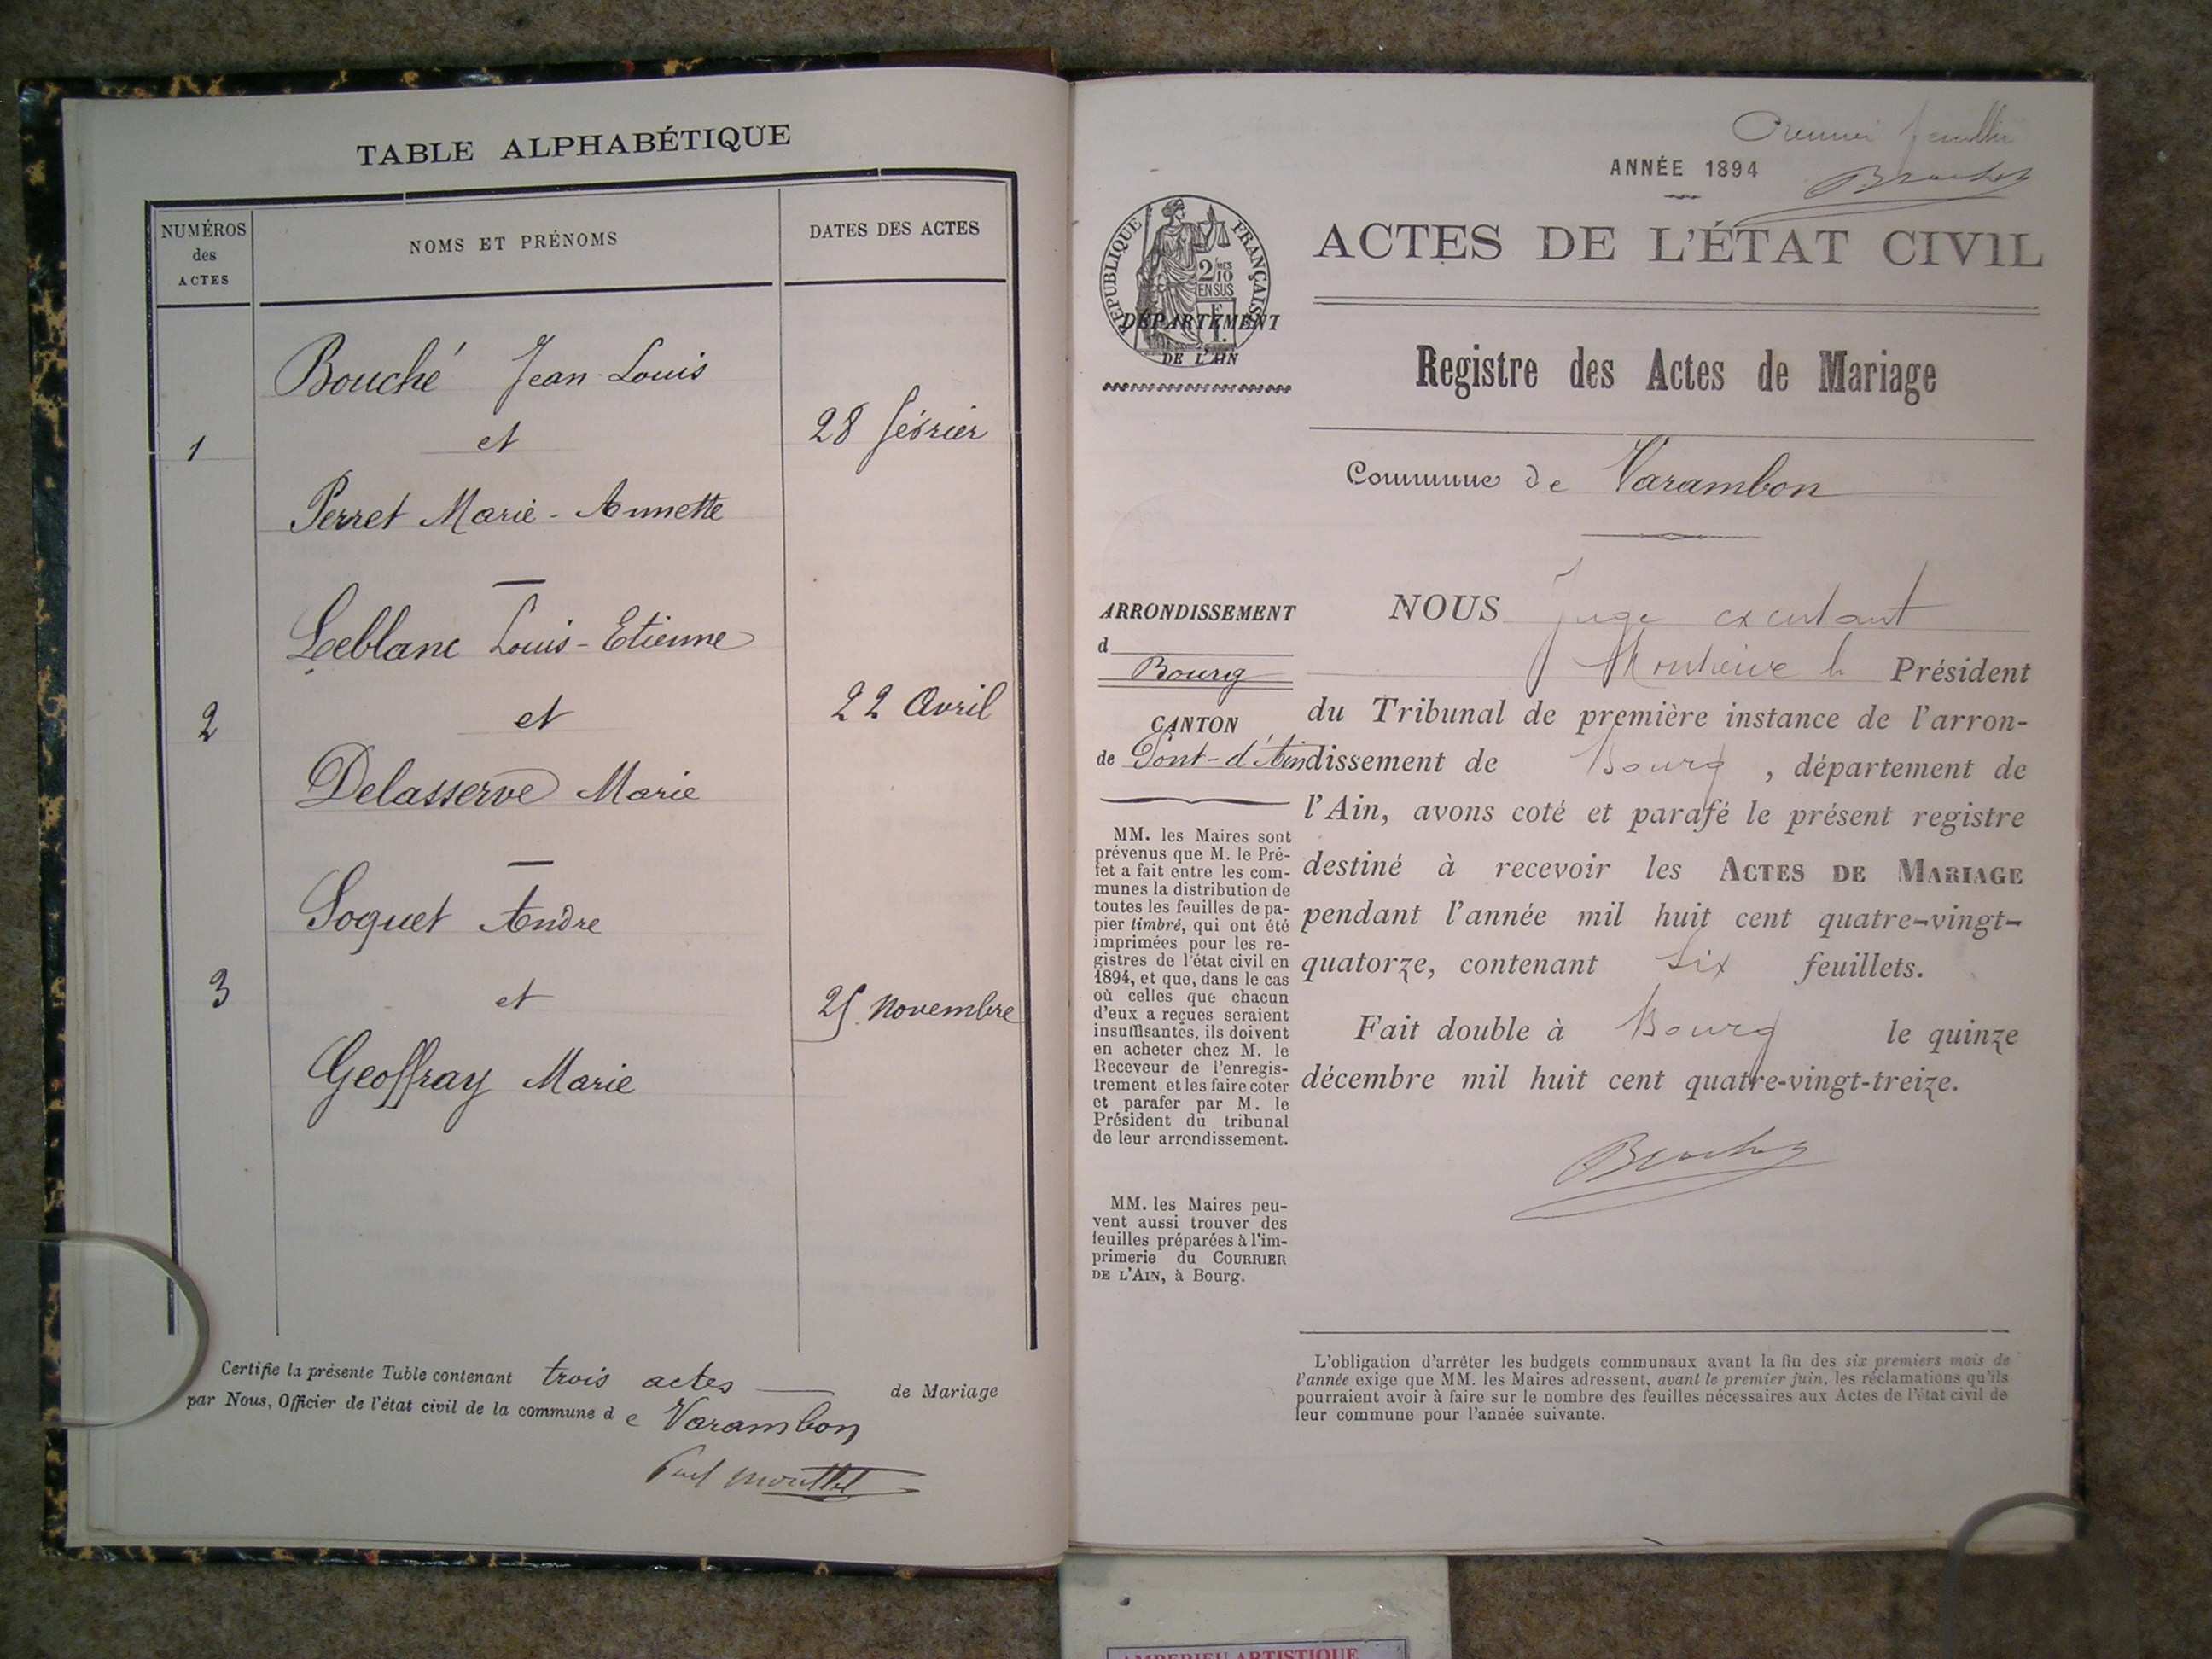 TABLE ALPHABÉTIQUE
NUMÉROS
des
ACTES
NOMS ET PRÉNOMS
DATES DES ACTES
Bouché Jean-Louis
1
et
28 février
Perret Marie-Annette
Leblanc Louis-Etienne
2
et
22 Avril
Delasserve Marie
Soquet Andre
3
et
25 Novembre
Geoffray Marie
Certifie la présente Table contenant trois actes de Mariage
par Nous, Officier de l'état civil de la commune de Varambon
ANNÉE 1894
RÉPUBLIQUE FRANÇAISE
2/10 MES
EN SUS
DÉPARTEMENT
DE L'AIN
ACTES DE L'ÉTAT CIVIL
Registre des Actes de Mariage
Commune de Varambon
ARRONDISSEMENT
d
Bourg
CANTON
de Pont-d'Ain
MM. les Maires sont
prévenus que M. le Pré-
fet a fait entre les com-
munes la distribution de
toutes les feuilles de pa-
pier timbré, qui ont été
imprimées pour les re-
gistres de l'état civil en
1894, et que, dans le cas
où celles que chacun
d'eux a reçues seraient
insuffisantes, ils doivent
en acheter chez M. le
Receveur de l'enregis-
trement et les faire coter
et parafer par M. le
Président du tribunal
de leur arrondissement.
MM. les Maires peu-
vent aussi trouver des
feuilles préparées à l'im-
primerie du COURRIER
DE L'AIN, à Bourg.
NOUS Juge
Président
du Tribunal de première instance de l'arron-
dissement de Bourg, département de
l'Ain, avons coté et parafé le présent registre
destiné à recevoir les ACTES DE MARIAGE
pendant l'année mil huit cent quatre-vingt-
quatorze, contenant six feuillets.
Fait double à Bourg le quinze
décembre mil huit cent quatre-vingt-treize.
L'obligation d'arrêter les budgets communaux avant la fin des six premiers mois de
l'année exige que MM. les Maires adressent, avant le premier juin, les réclamations qu'ils
pourraient avoir à faire sur le nombre des feuilles nécessaires aux Actes de l'état civil de
leur commune pour l'année suivante.
AMBERIEU ARTISTIQUE